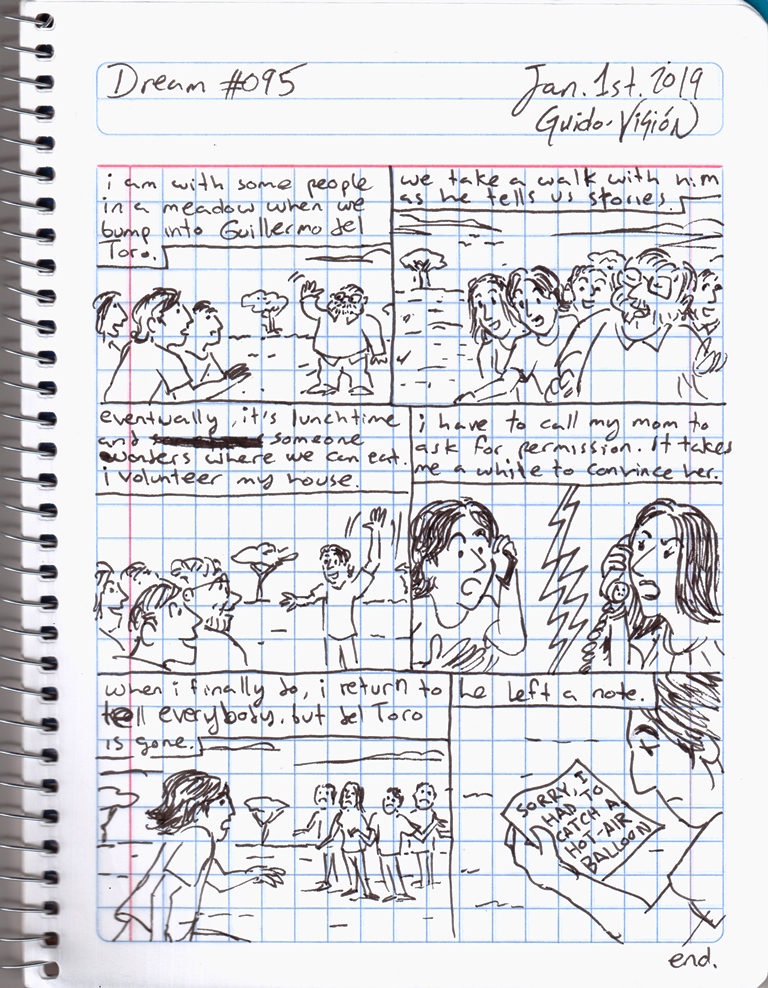 Dream #095
Jan. 1st. 2019
Guido-Visión
i am with some people
in a meadow when we
bump into Guillermo del
Toro.
we take a walk with him
as he tells us stories.
eventually, it's lunchtime
and someone
wonders where we can eat.
i volunteer my house.
i have to call my mom to
ask for permission. It takes
me a while to convince her.
when i finally do, i return to
tell everybody, but del Toro
is gone.
he left a note.
SORRY, I
HAD TO
CATCH A
HOT-AIR
BALLOON
end.